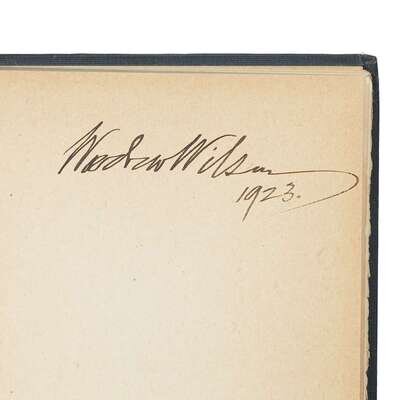 Woodrow Wilson
1923.